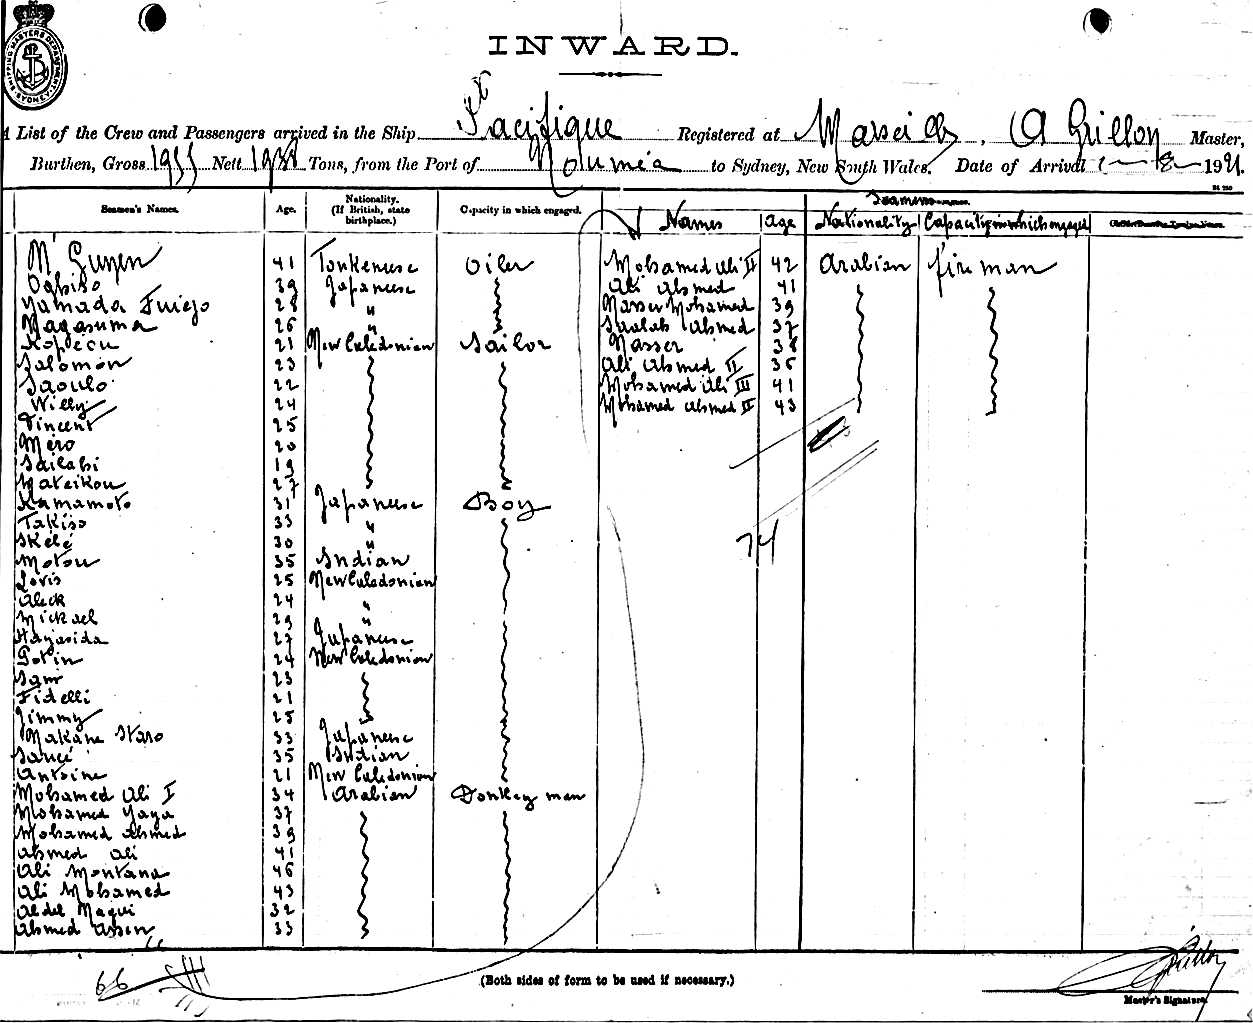 SHIPPING MASTERS DEPARTMENT SYDNEY
INWARD.
A List of the Crew and Passengers arrived in the Ship Pacifique Registered at Marseille, A Grillon Master,
Burthen, Gross Nett Tons, from the Port of Nouméa to Sydney, New South Wales, Date of Arrival 1921.
Seamen's Names. Age. Nationality. (If British, state birthplace.) Capacity in which engaged. Names Age Nationality Capacity in which engaged
M' Guyen 41 Tonkenese Oiler Mohamed Ali II 42 Arabian fireman
Oghiso 39 Japanese Ali Ahmed 41
Yamada Fuiejo 28 " Nasser Mohamed 39
Nagasuma 26 " Saalah Ahmed 37
Kopécu 21 New Caledonian Sailor Nasser 38
Salomon 23 Ali Ahmed II 36
Saoulo 22 Mohamed Ali III 41
Willy 24 Mohamed Ahmed II 43
Vincent 25
Méro 20
Sailabi 19
Wateikou 27
Kamamoto 31 Japanese Boy
Takiso 33 "
Skélé 30 "
Motou 35 Indian
Lovis 25 New Caledonian
Aleck 24
Mickael 29 "
Hayasida 27 Japanese
Gotin 24 New Caledonian
Sam 23
Fidelli 21
Jimmy 25
Nakane Staro 33 Japanese
Sancé 35 Indian
Antoine 21 New Caledonian
Mohamed Ali I 34 Arabian Donkeyman
Mohamed Yaya 37
Mohamed Ahmed 39
Ahmed Ali 41
Ali Montana 46
Ali Mohamed 43
Abdel Magui 32
Ahmed Assen 33
74
66
(Both sides of form to be used if necessary.)
Grillon
Master's Signature.